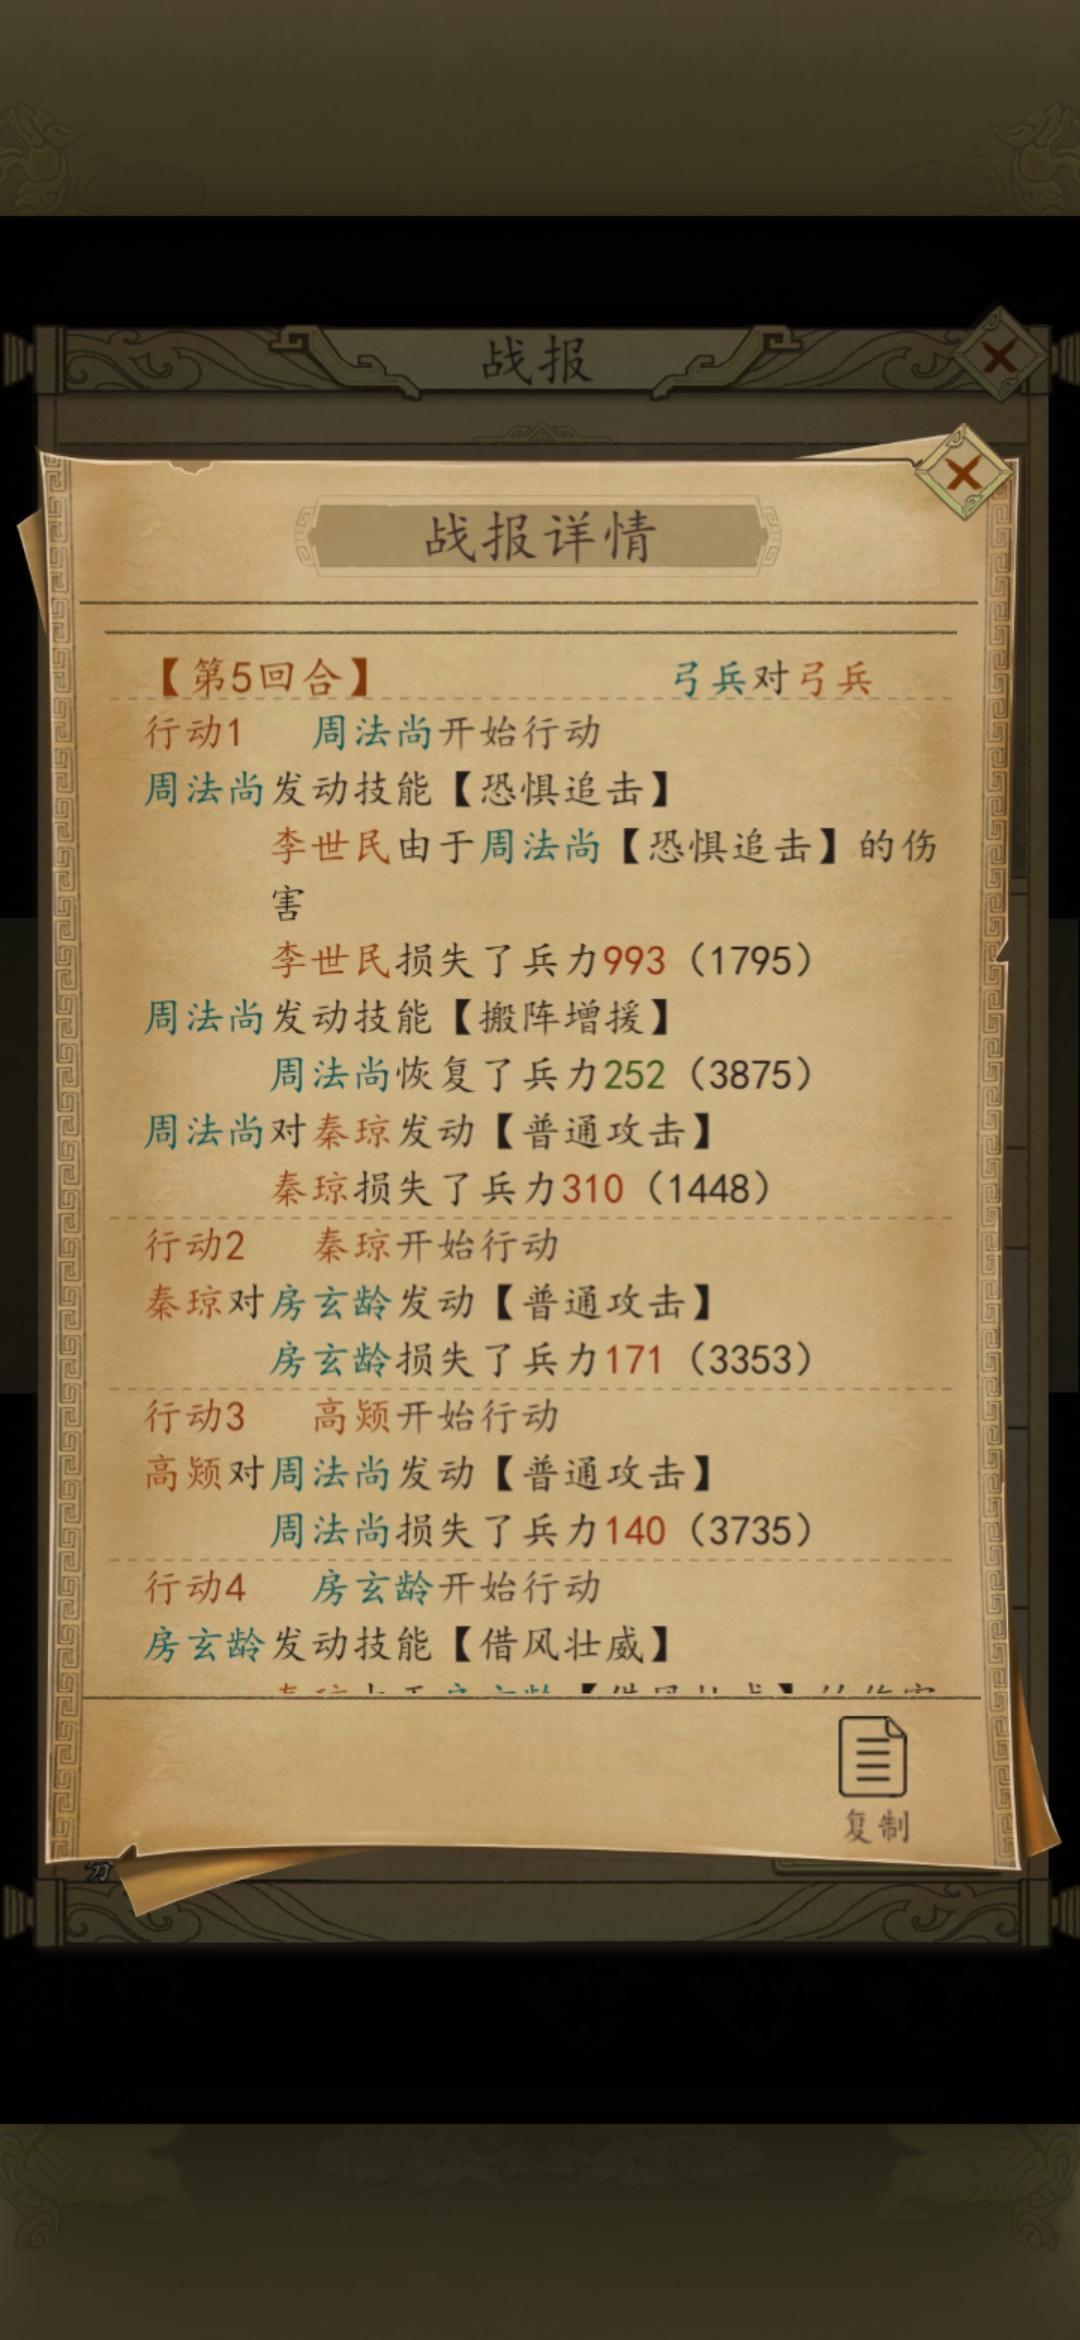 战报
战报详情
【第5回合】 弓兵对弓兵
行动1 周法尚开始行动
周法尚发动技能【恐惧追击】
李世民由于周法尚【恐惧追击】的伤
害
李世民损失了兵力993（1795）
周法尚发动技能【搬阵增援】
周法尚恢复了兵力252（3875）
周法尚对秦琼发动【普通攻击】
秦琼损失了兵力310（1448）
行动2 秦琼开始行动
秦琼对房玄龄发动【普通攻击】
房玄龄损失了兵力171（3353）
行动3 高颎开始行动
高颎对周法尚发动【普通攻击】
周法尚损失了兵力140（3735）
行动4 房玄龄开始行动
房玄龄发动技能【借风壮威】
复制